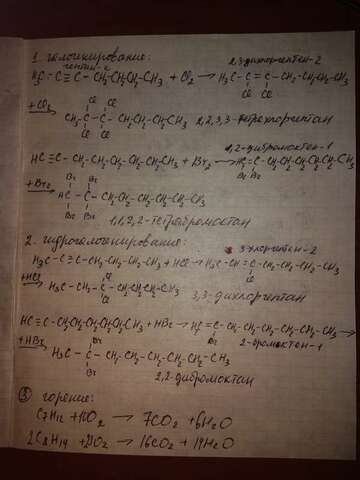 1. галогенирование:
гептин-2
2,3-дихлоргептен-2
H₃C-C≡C-CH₂-CH₂-CH₂-CH₃ + Cl₂ → H₃C-C=C-CH₂-CH₂-CH₂-CH₃
Cl Cl
+Cl₂
Cl Cl
→ CH₃-C-C-CH₂-CH₂-CH₂-CH₃ 2,2,3,3-тетрахлоргептан
Cl Cl
1,2-дибромоктен-1
HC≡C-CH₂-CH₂-CH₂-CH₂-CH₂-CH₃ + Br₂ → HC=C-CH₂-CH₂-CH₂-CH₂-CH₂-CH₃
Br Br
+Br₂
Br Br
→ HC-C-CH₂-CH₂-CH₂-CH₂-CH₂-CH₃
Br Br
1,1,2,2-тетрабромоктан
2. гидрогалогенирование:
3-хлоргептен-2
H₃C-C≡C-CH₂-CH₂-CH₂-CH₃ + HCl → H₃C-CH=C-CH₂-CH₂-CH₂-CH₃
Cl
+HCl
Cl
→ H₃C-CH₂-C-CH₂-CH₂-CH₂-CH₃
Cl
3,3-дихлоргептан
HC≡C-CH₂-CH₂-CH₂-CH₂-CH₂-CH₃ + HBr → H₂C=C-CH₂-CH₂-CH₂-CH₂-CH₂-CH₃ →
Br
2-бромоктен-1
+HBr
Br
→ H₃C-C-CH₂-CH₂-CH₂-CH₂-CH₂-CH₃
Br
2,2-дибромоктан
③ горение:
C₇H₁₂ + 10O₂ → 7CO₂ + 6H₂O
2C₈H₁₄ + 23O₂ → 16CO₂ + 14H₂O